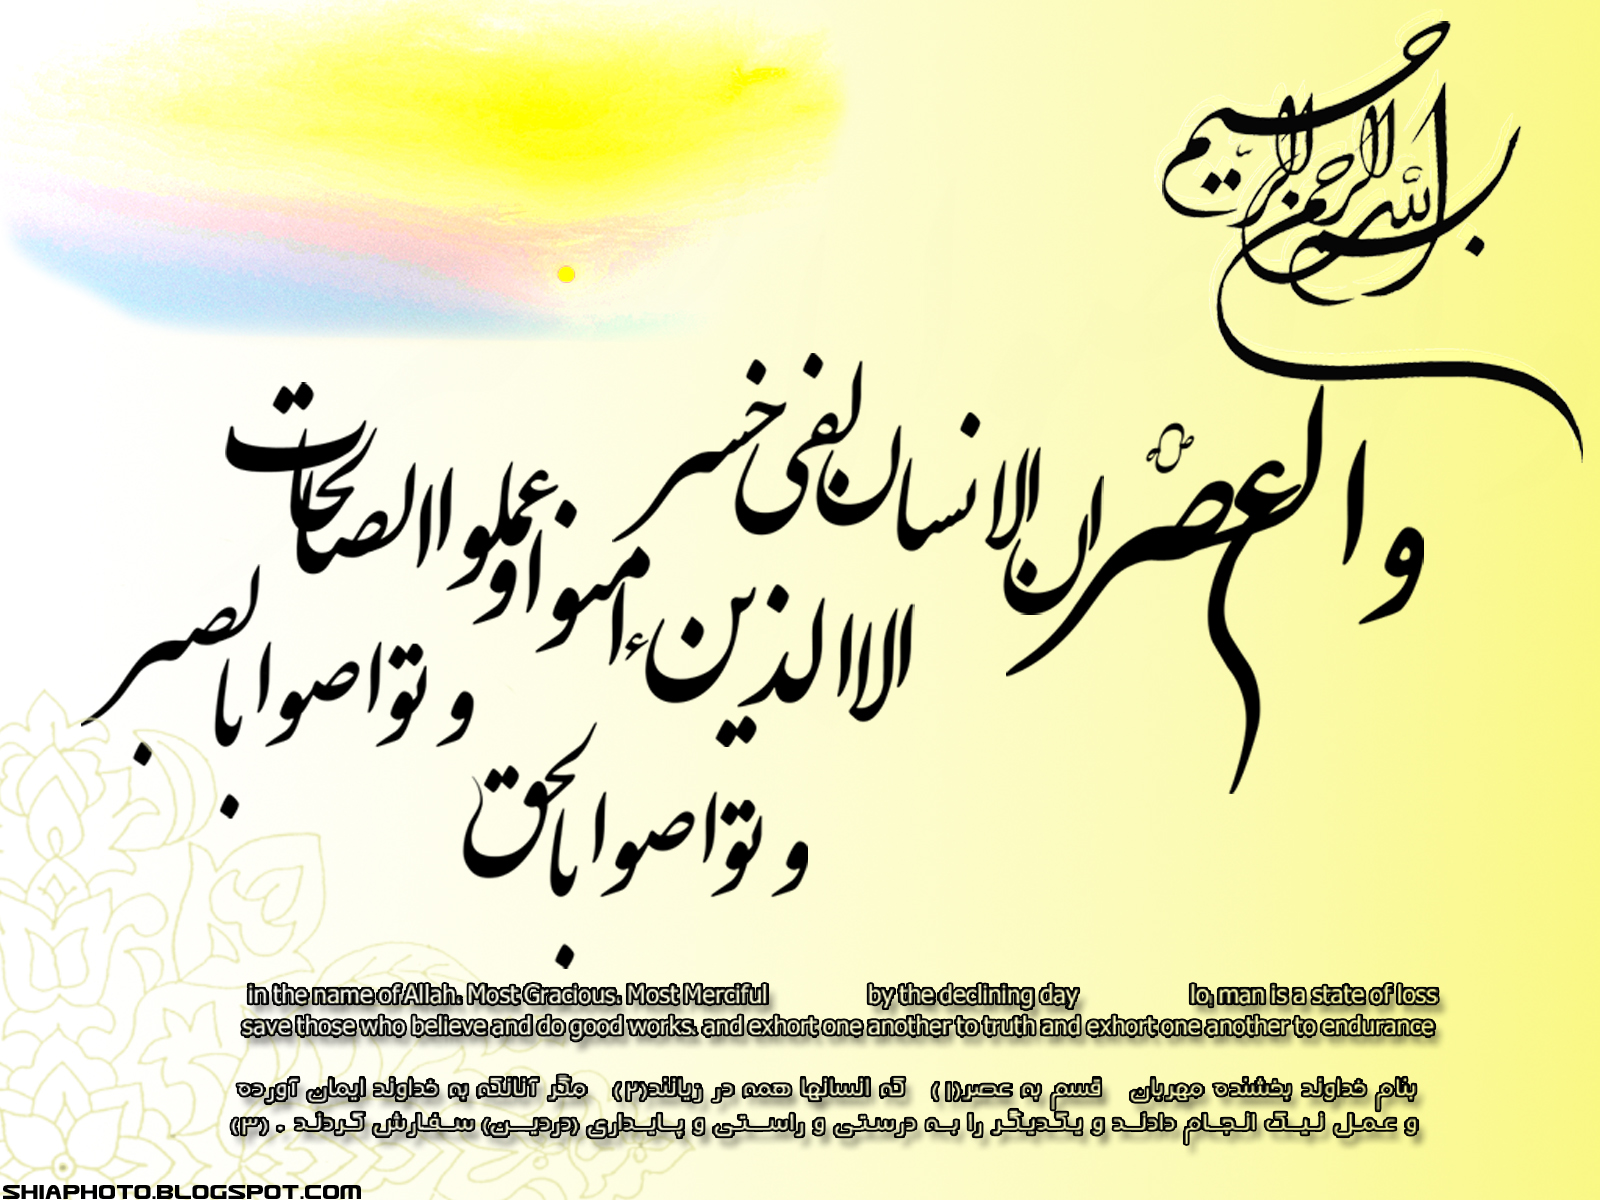 بسم الله الرحمن الرحيم
والعصر ان الانسان لفی خسر
الا االذین ءامنوا وعملوا االصالحات
و تواصوا بالحق
و تواصوا بالصبر
in the name of Allah. Most Gracious. Most Merciful by the declining day lo, man is a state of loss
save those who believe and do good works. and exhort one another to truth and exhort one another to endurance
بنام خداوند بخشنده مهربان قسم به عصر(۱) که انسانها همه در زیانند(۲) مگر آنانکه به خداوند ایمان آورده
و عمل نیک انجام دادند و یکدیگر را به درستی و راستی و پایداری (دردین) سفارش کردند . (۳)
SHIAPHOTO.BLOGSPOT.COM